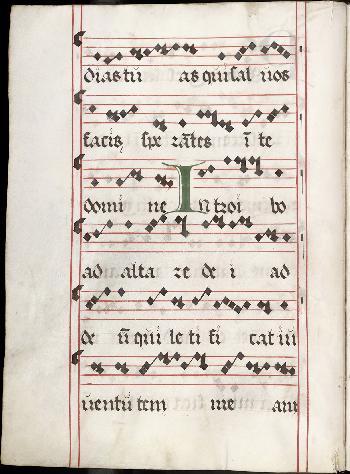 dias tu as qui sal uos
facis spe rātes ī te
domi ne Introi bo
ad alta re de i ad
de ū qui le ti fi cat iu
uentu tem me am